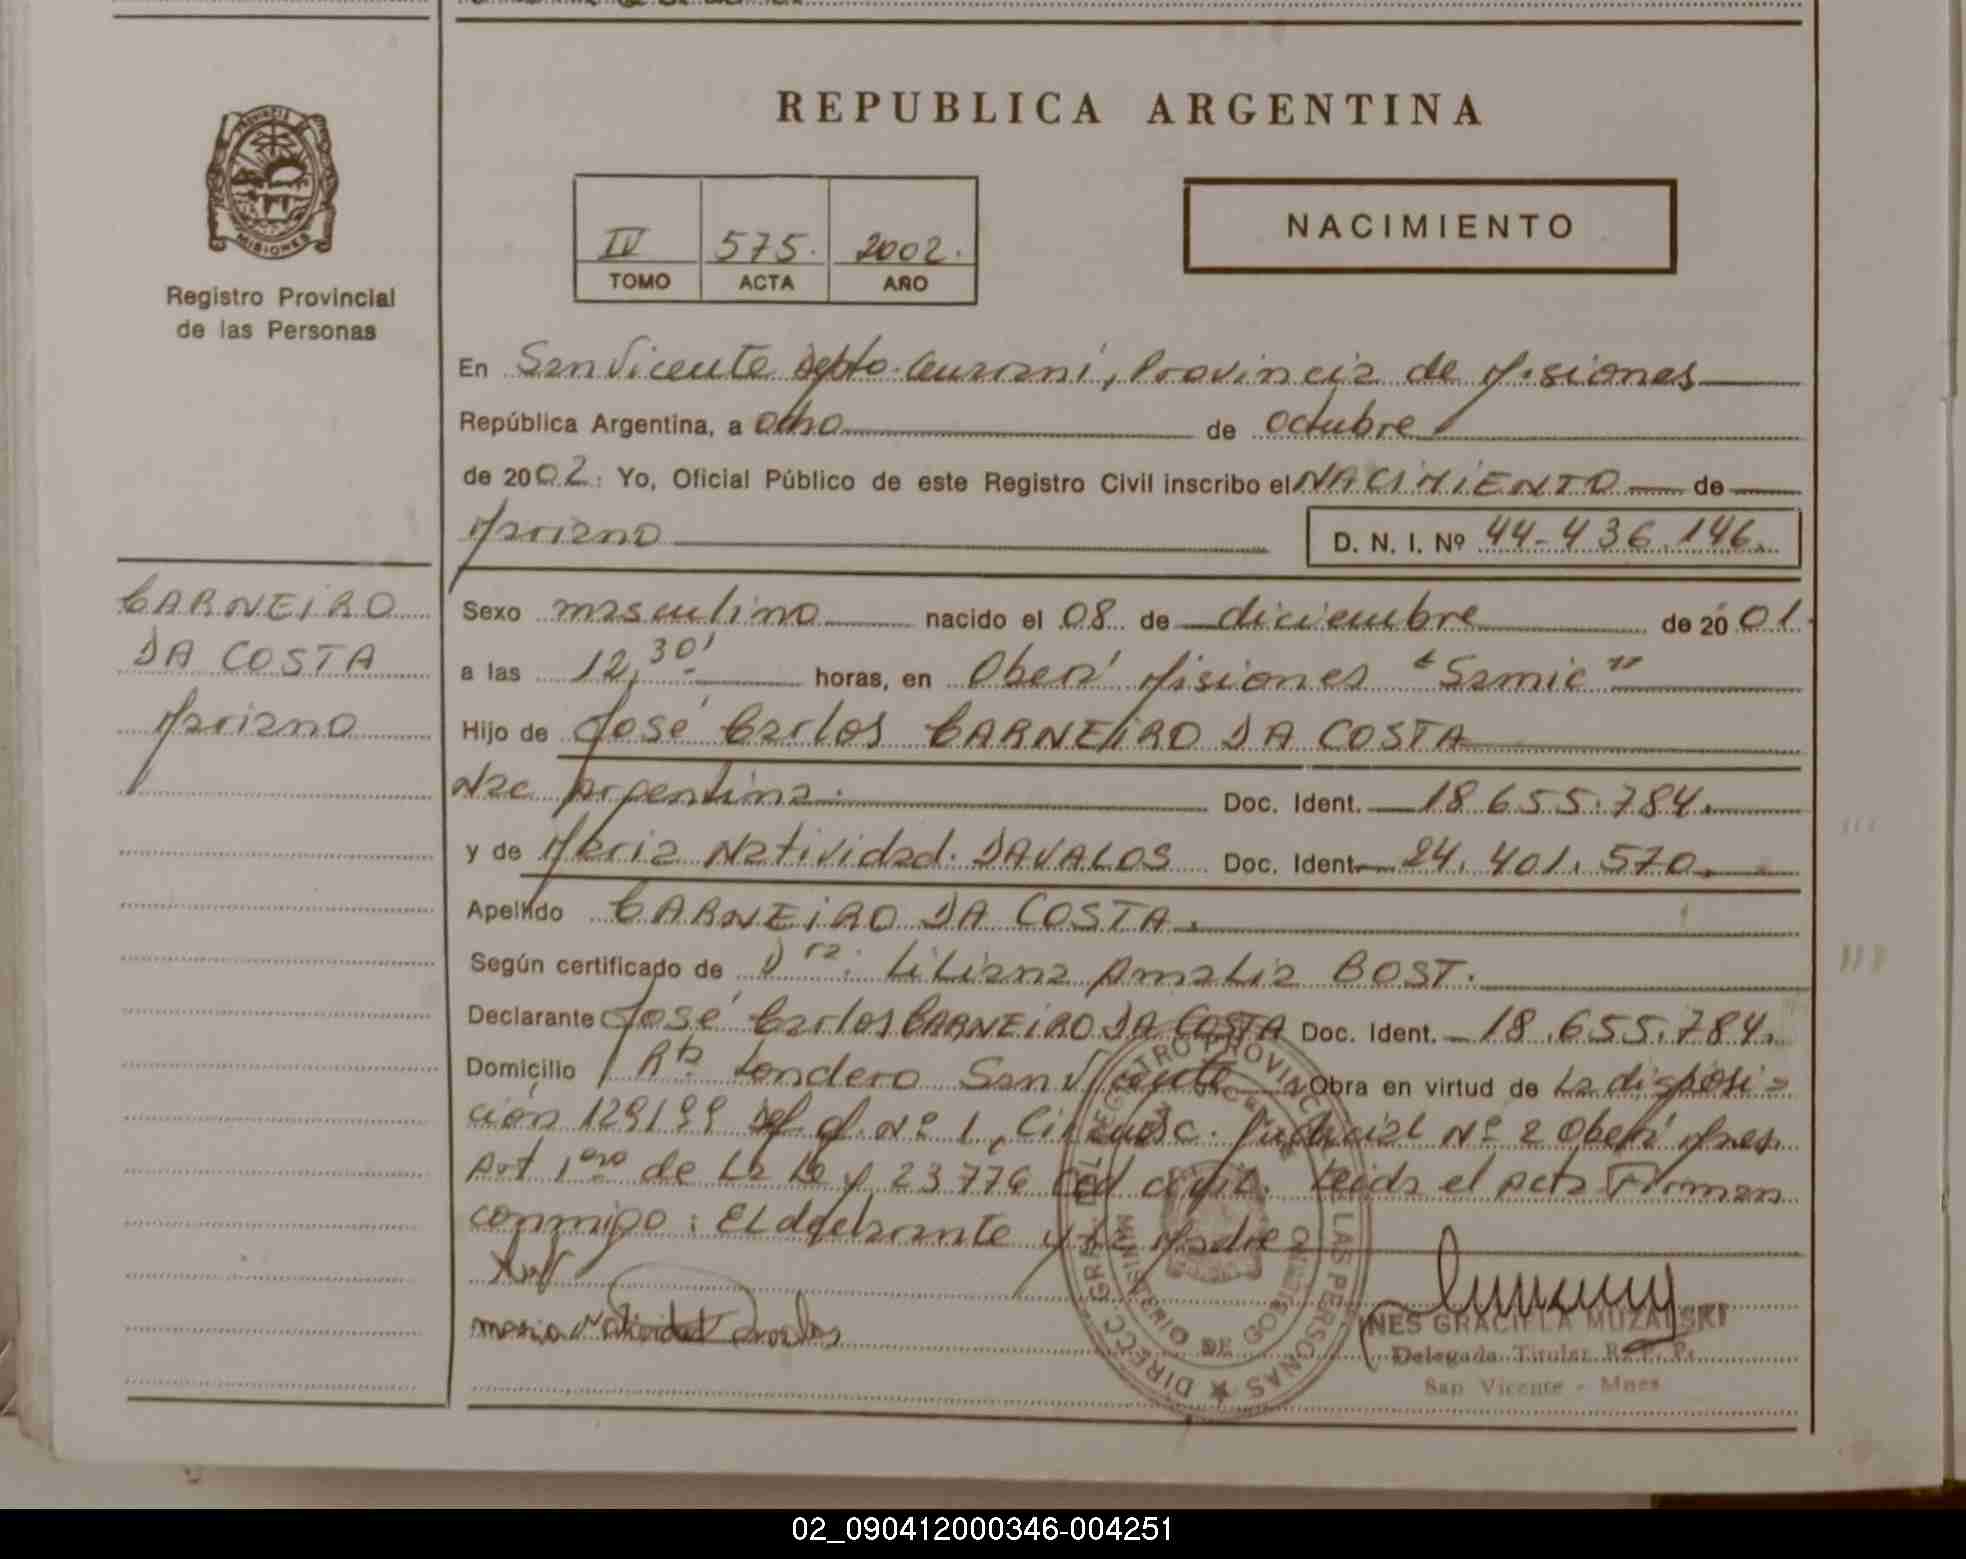 REPUBLICA ARGENTINA
PROVINCIA DE
MISIONES
Registro Provincial
de las Personas
IV 575. 2002.
TOMO ACTA AÑO
NACIMIENTO
En San Vicente Depto. Guaraní, Provincia de Misiones
República Argentina, a ocho de octubre
de 2002: Yo, Oficial Público de este Registro Civil inscribo el NACIMIENTO de
Mariano D. N. I. Nº 44-436.146.
CARNEIRO
DA COSTA
Mariano
Sexo masculino nacido el 08 de diciembre de 2001.
a las 12,30' horas, en Oberá Misiones "Samic"
Hijo de José Carlos CARNEIRO DA COSTA
Nac Argentina. Doc. Ident. 18.655.784.
y de María Natividad. DAVALOS Doc. Ident. 24.401.570.
Apellido CARNEIRO DA COSTA.
Según certificado de Dra. Liliana Amalia BOST.
Declarante José Carlos CARNEIRO DA COSTA Doc. Ident. 18.655.784.
Domicilio Londero San Vicente Obra en virtud de La disposi=
ción 129199 Nº 1, Circunsc. Judicial Nº 2 Oberá Mnes
Art 1ero de La Ley 23776 Cod civil. Leida el acta Firman
conmigo: EL declarante y La Madre
maria Natividad Davalos
DIRECC. GRAL. DEL REGISTRO PROVINCIAL DE LAS PERSONAS
INES GRACIELA MUZALSKI
Delegada Titular R. P. P.
San Vicente - Mnes
02_090412000346-004251